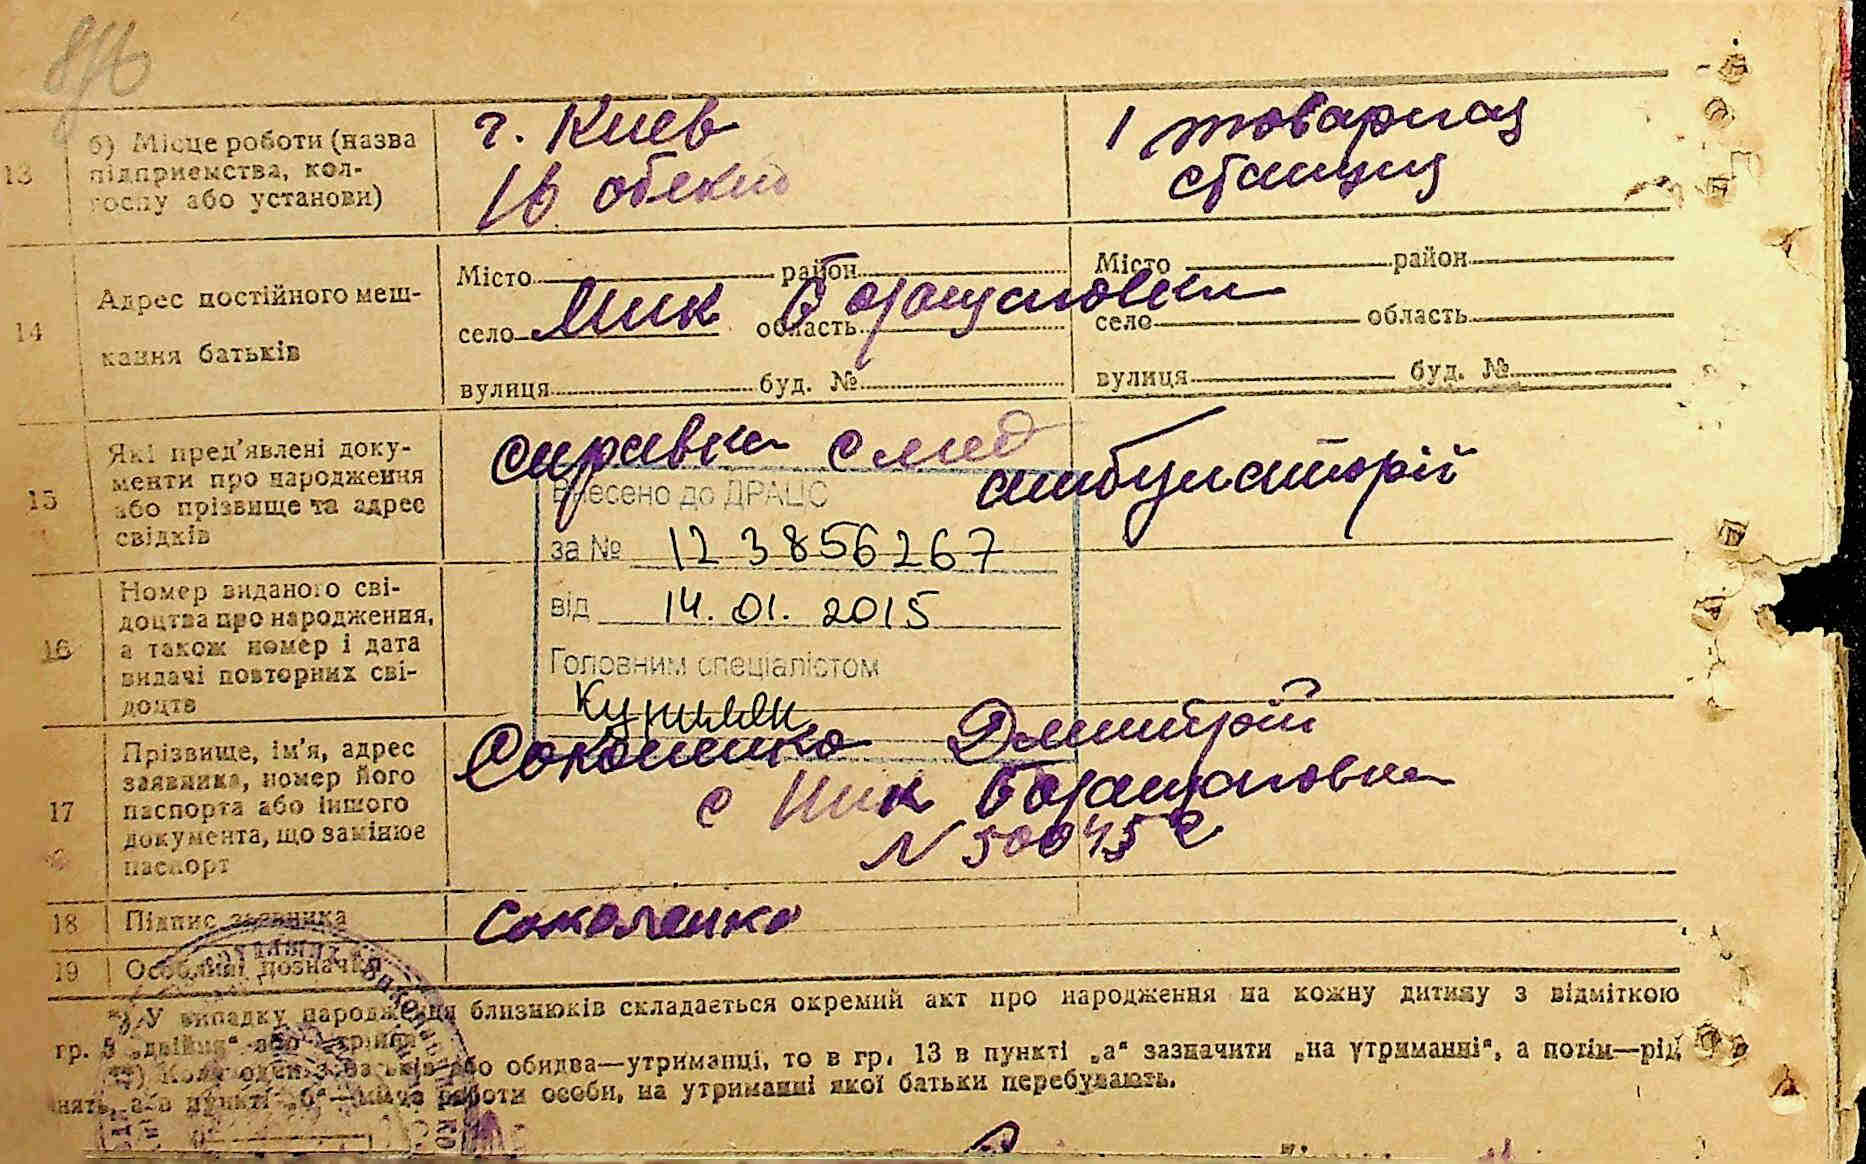 13
б) Місце роботи (назва
підприємства, кол-
госпу або установи)
г. Киев
16 обект
1 товарная
станция
14
Адрес постійного меш-
кання батьків
Місто район
село Мик Борщаговки область
вулиця буд. №
Місто район
село область
вулиця буд. №
15
Які пред'явлені доку-
менти про народження
або прізвище та адрес
свідків
справка с мед
амбулаторій
Внесено до ДРАЦС
за № 1238856267
від 14.01.2015
Головним спеціалістом
16
Номер виданого сві-
доцтва про народження,
а також номер і дата
видачі повторних сві-
доцтв
17
Прізвище, ім'я, адрес
заявника, номер його
паспорта або іншого
документа, що замінює
паспорт
Соколенко Дмитрій
с Мик Борщаговка
18
Підпис заявника
Соколенко
19
Особливі дозначки
*) У випадку народження близнюків складається окремий акт про народження на кожну дитину з відміткою
гр. 3 „двійня“ або „трійня“
**) Коли один з батьків або обидва—утриманці, то в гр. 13 в пункті „а“ зазначити „на утриманні“, а потім—рід
занять, а в пункті „б“—місце роботи особи, на утриманні якої батьки перебувають.